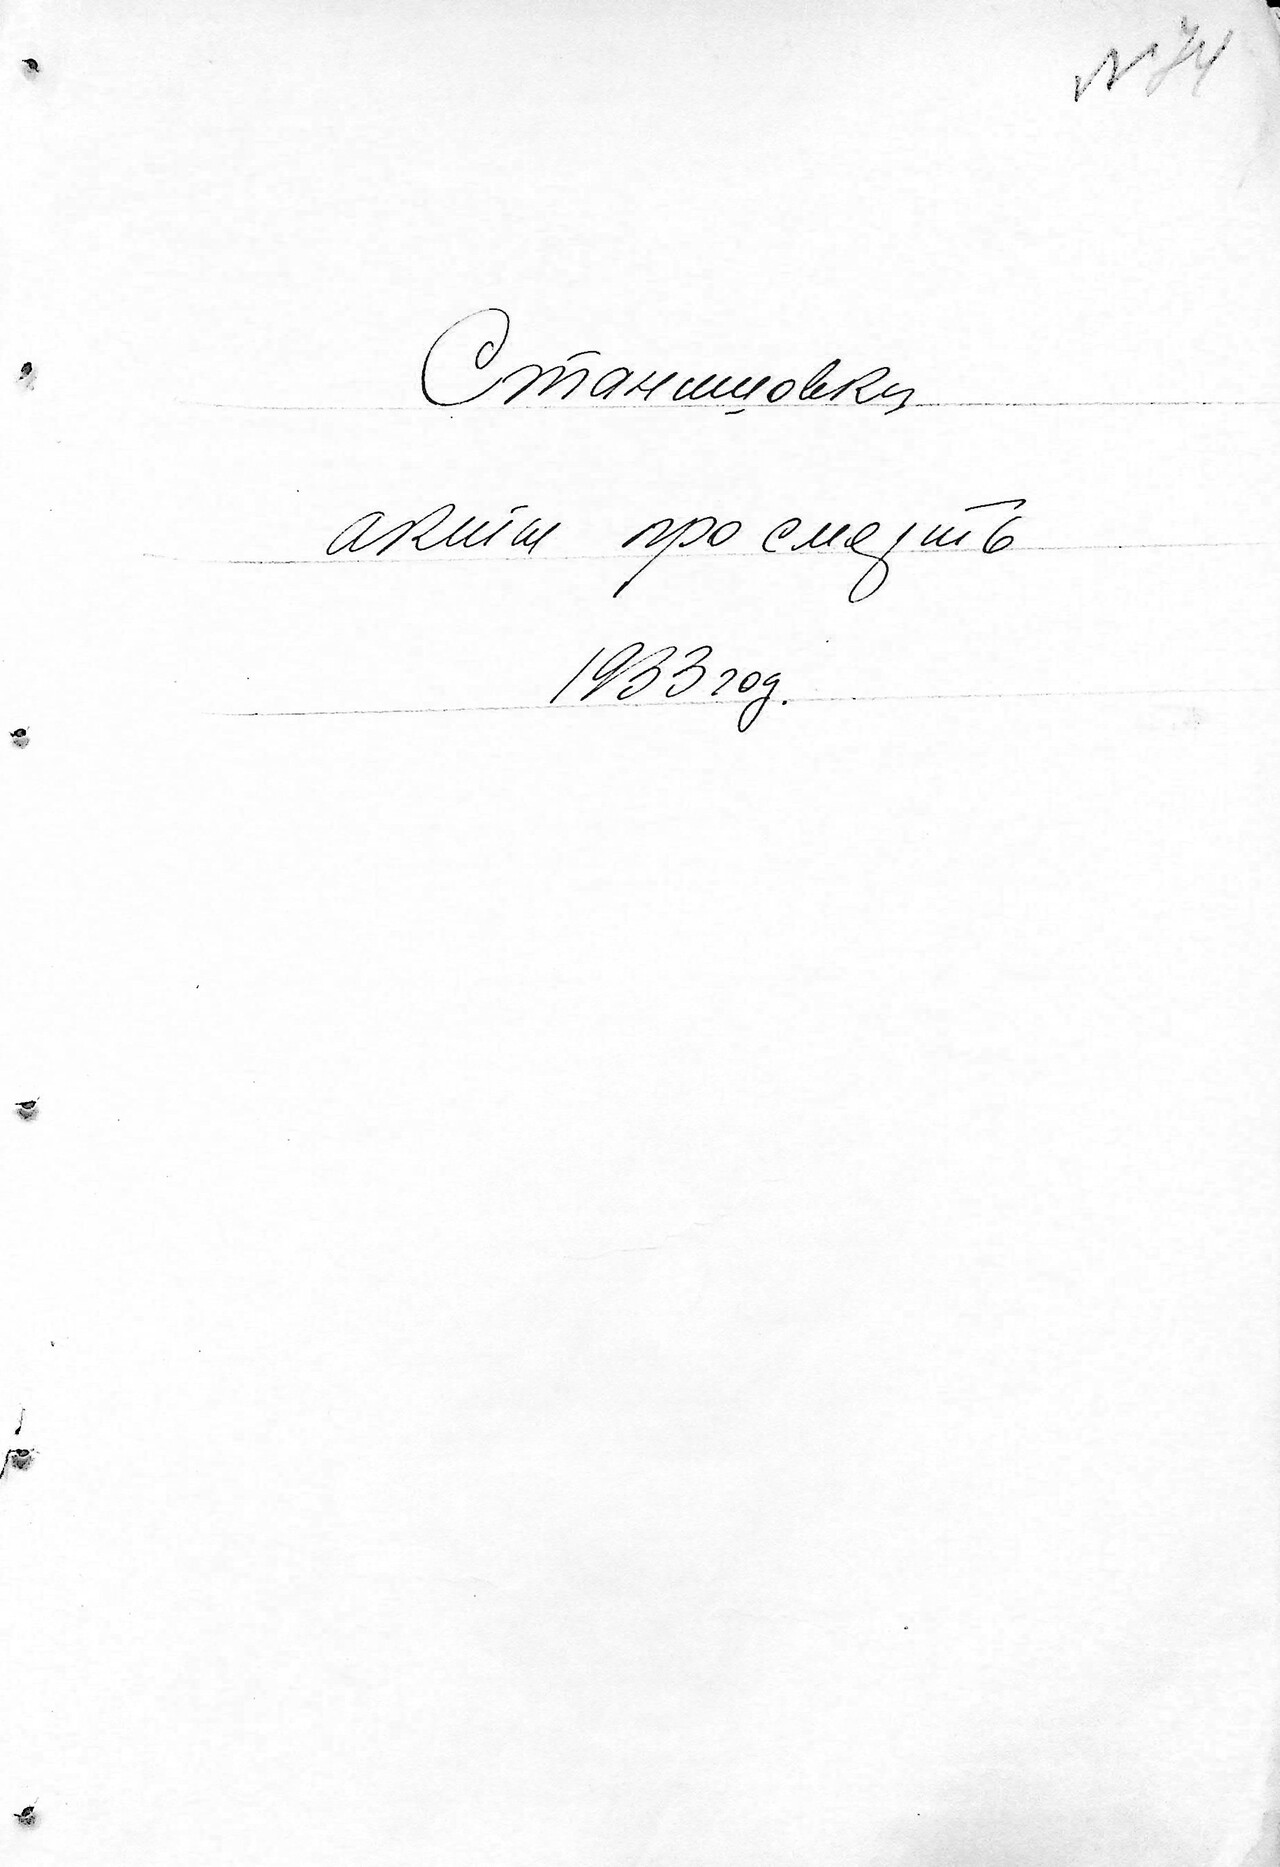 N 74
Станишовка
акти про смерть
1933 год.